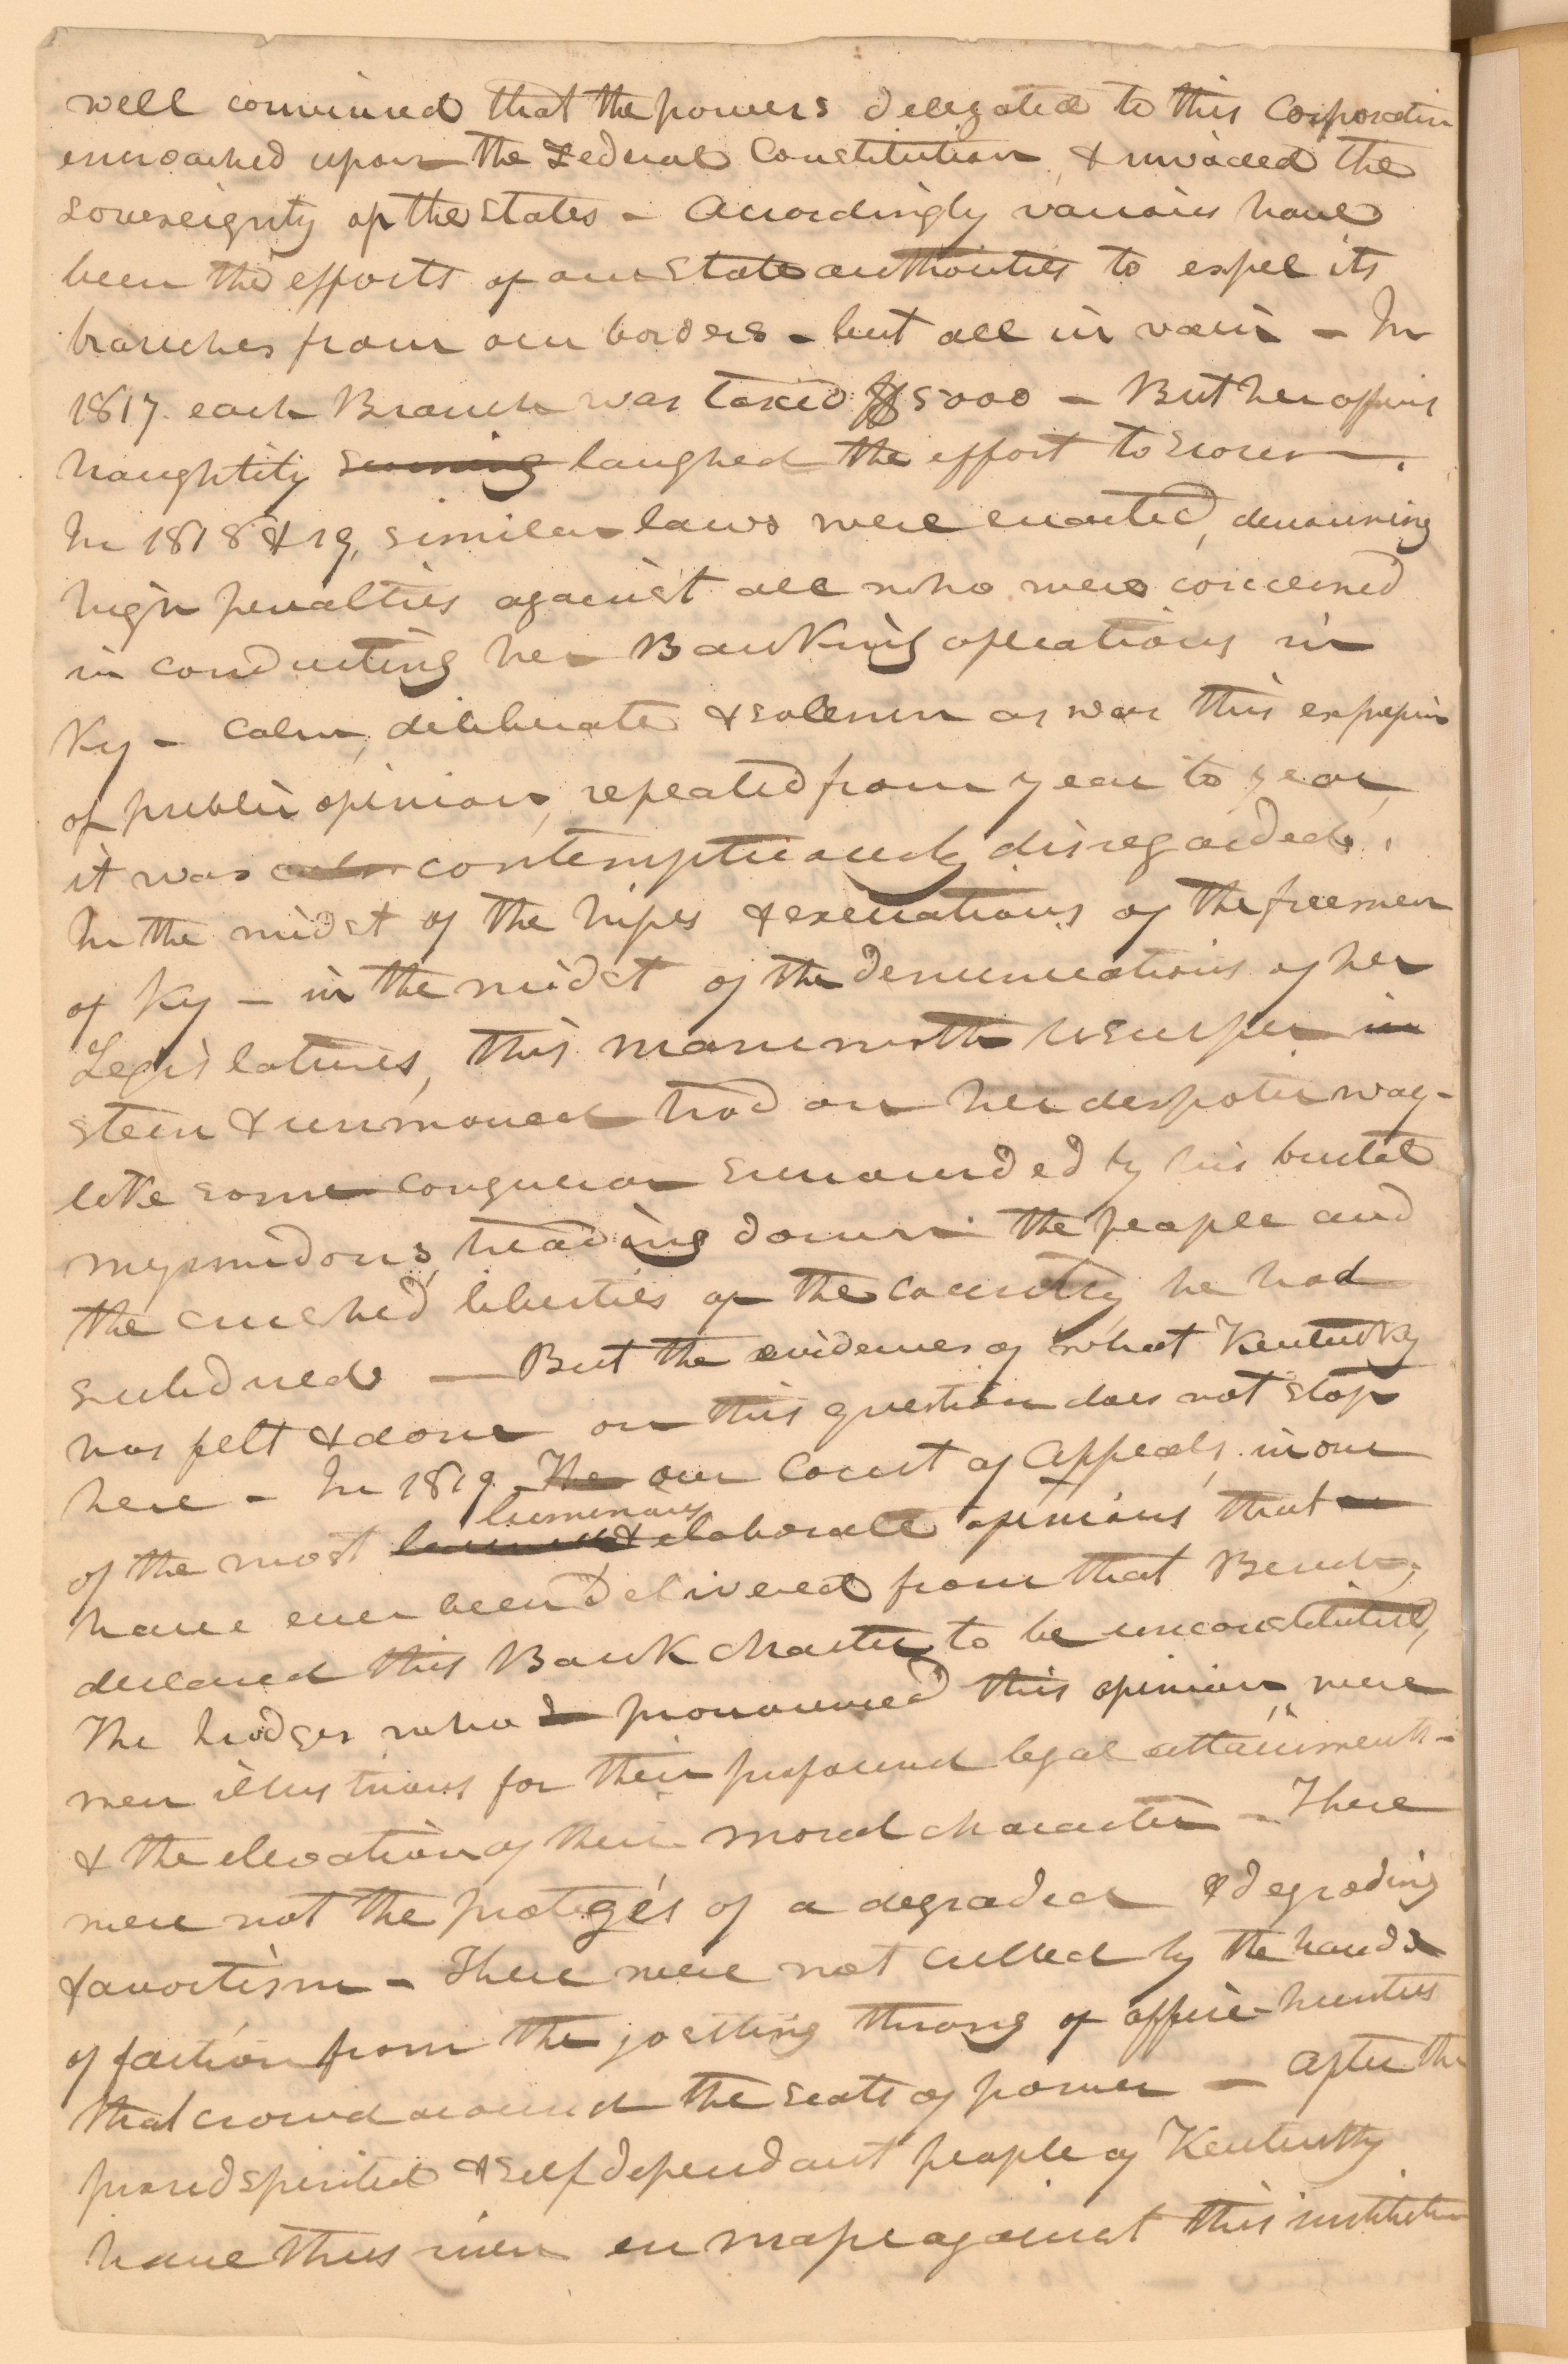 well convinced that the powers delegated to this Corporation
encroached upon the Federal Constitution, & invaded the
sovereignty of the States - Accordingly various have
been the efforts of our State authorities to expel its
branches from our borders - but all in vain - In
1817. each Branch was taxed $5000 - But her officers
haughtily scorning laughed the effort to scorn.
In 1818 & 19, similar laws were enacted, denouncing
high penalties against all who were concerned
in conducting her Banking operations in
Ky - Calm, deliberate & solemn as was this expression
of public opinion, repeated from year to year,
it was contemptuously disregarded.
In the midst of the hisses & execrations of the freemen
of Ky - in the midst of the denunciations of her
Legislatures, this mammoth usurper in
stern & unmoved trod on her despotic way -
like some conqueror surrounded by his brutal
mymidons, treading down the people and
the crushed liberties of the country he had
subdued — But the evidences of what Kentucky
has felt & done on this question does not stop
here - In 1819. The our Court of Appeals, in one
luminous
of the most & elaborate opinions that
have ever been delivered from that Bench,
declared this Bank charter to be unconstitutional,
The Judges who pronounced this opinion, were
men illustrious for their profound legal attainments -
& the elevation of their moral character - These
were not the protegés of a degraded & degrading
favoritism - These were not culled by the hands
of faction from the jostling throng of office-hunters
that crowd around the seats of power - After the
proud spirited & self dependant people of Kentucky
have thus risen en masse against this institution